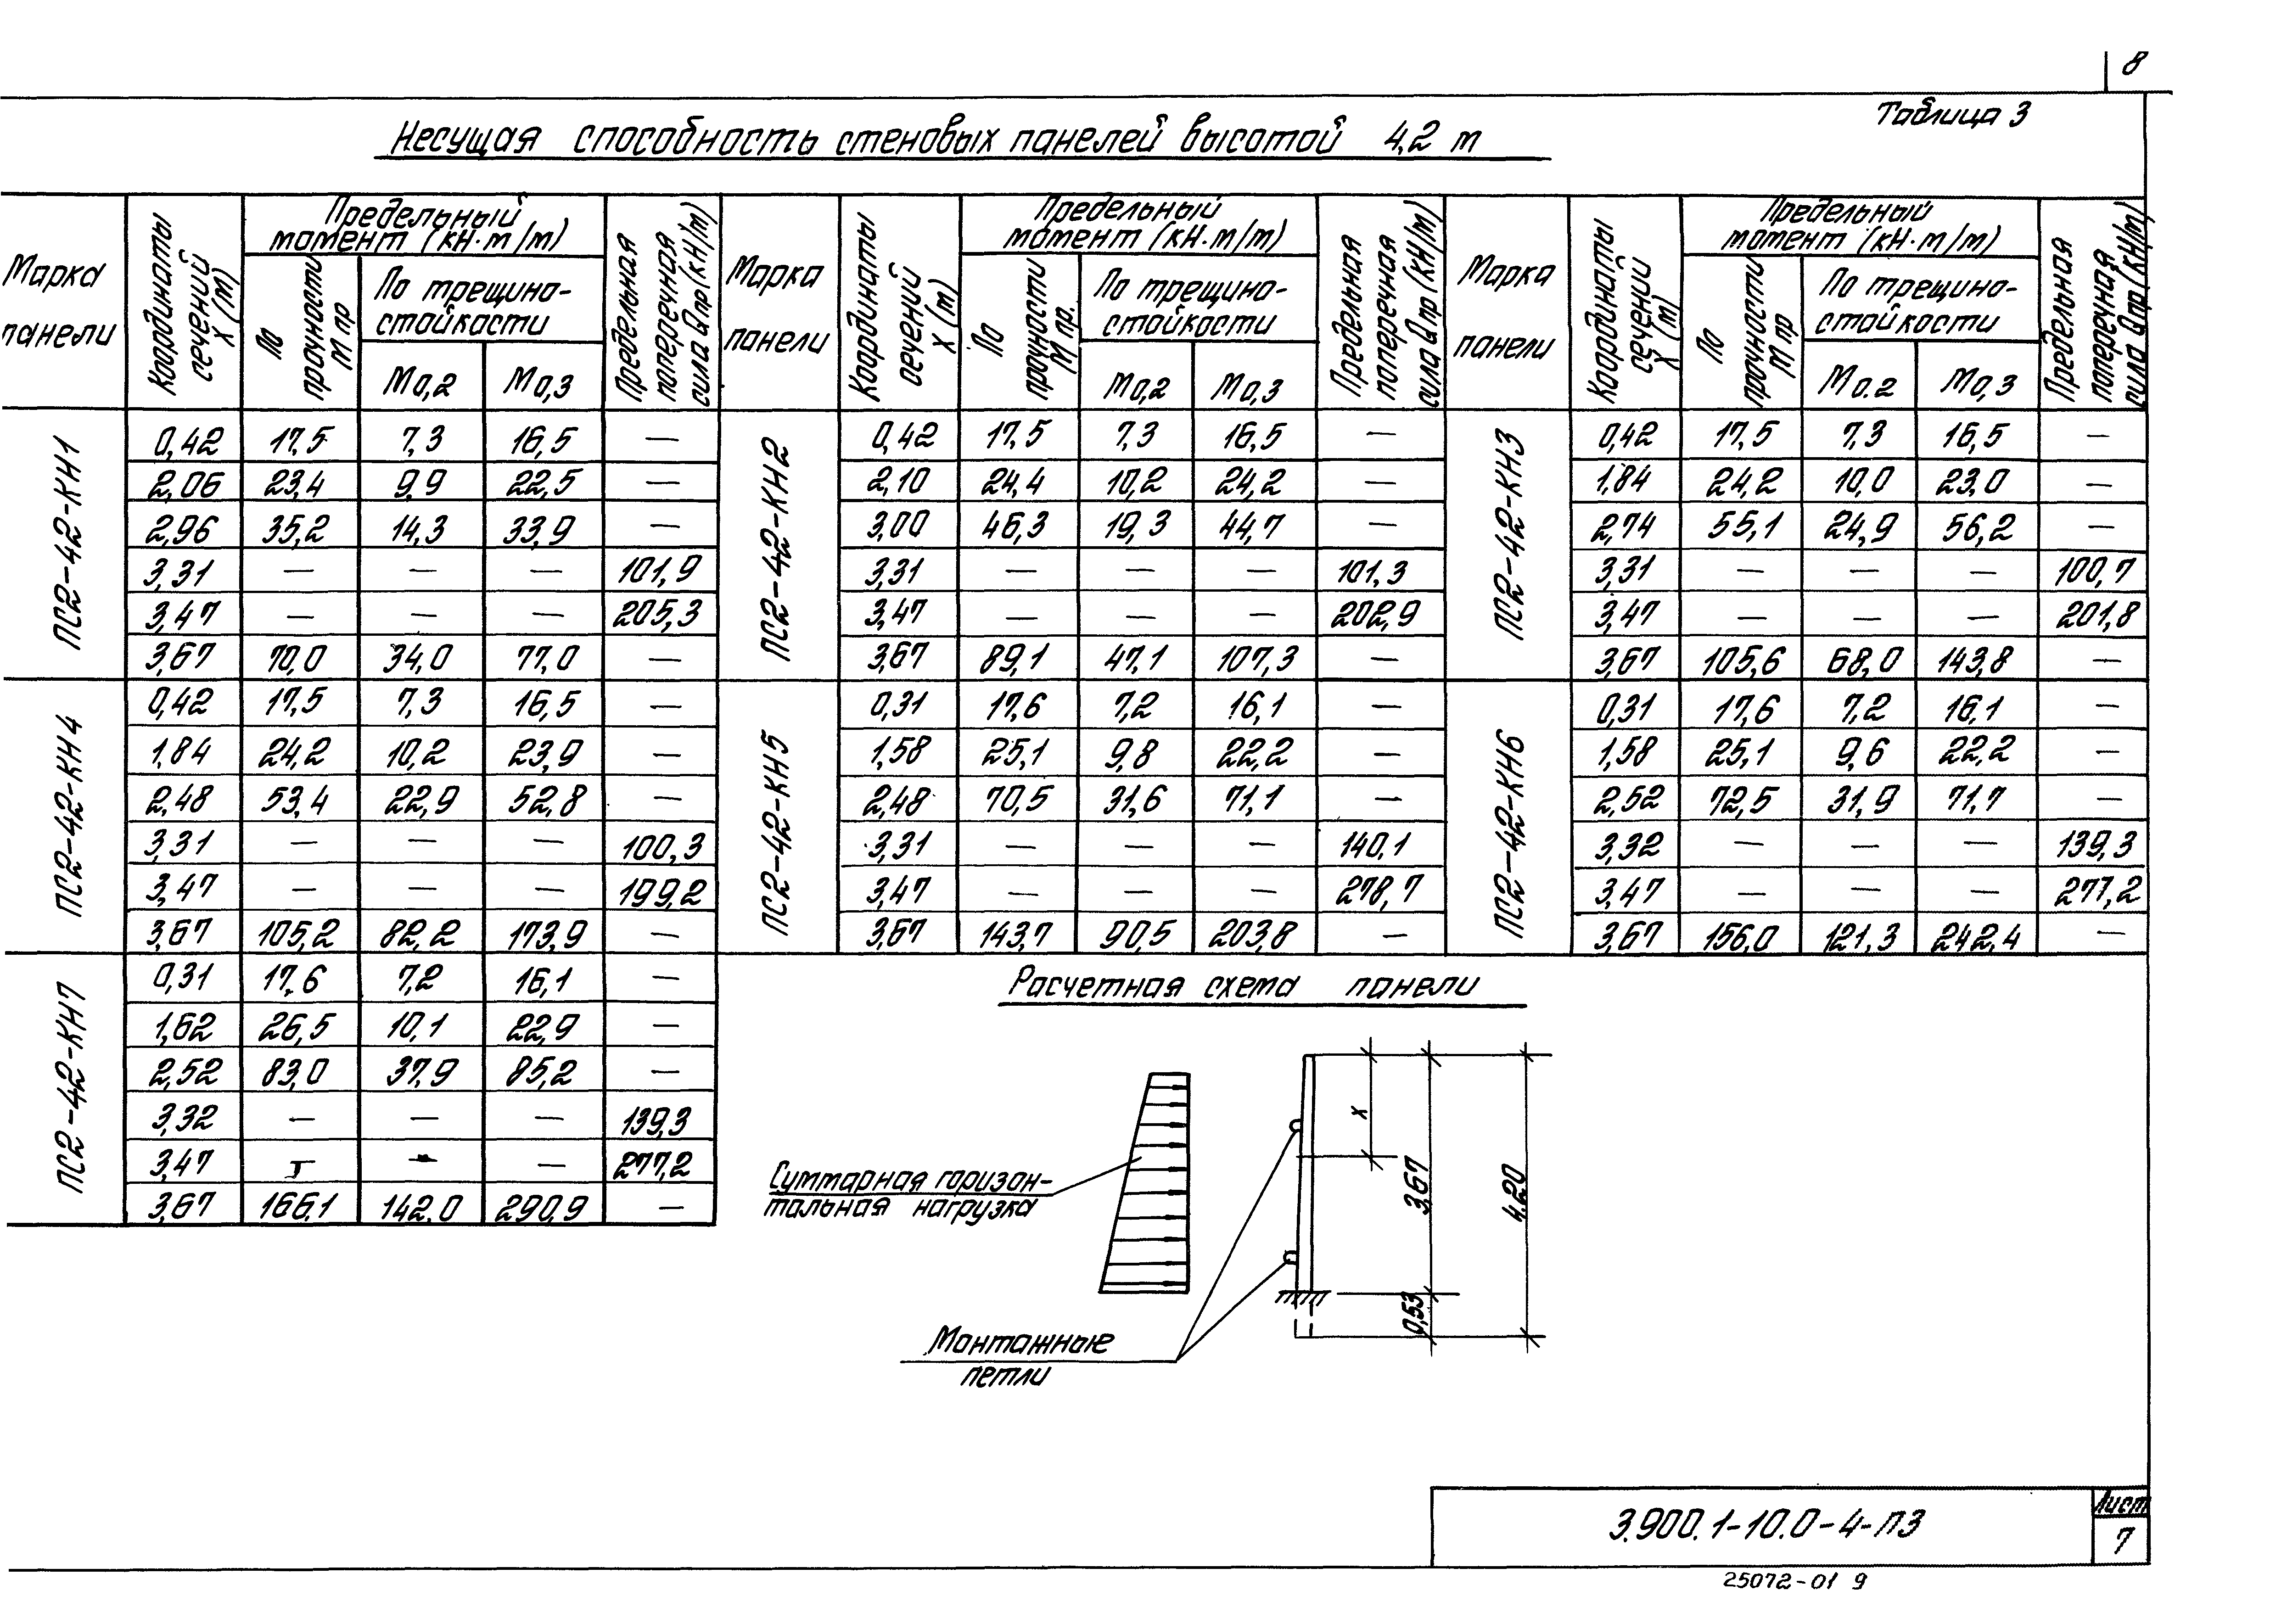 8
Таблица 3
Несущая способность стеновых панелей высотой 4,2 м
Марка панели
Координаты сечений X (м)
Предельный момент (кН·м/м)
По прочности М пр
По трещиностойкости
М 0,2
М 0,3
Предельная поперечная сила Q пр (кН/м)
Марка панели
Координаты сечений X (м)
Предельный момент (кН·м/м)
По прочности М пр.
По трещино-стойкости
М 0,2
М 0,3
Предельная поперечная сила Q пр (кН/м)
Марка панели
Координаты сечений X (м)
Предельный момент (кН·м/м)
По прочности М пр
По трещино-стойкости
М 0.2
М 0,3
Предельная поперечная сила Q пр (кН/м)
ПС2-42-КН1
0,42 17,5 7,3 16,5 —
2,06 23,4 9,9 22,5 —
2,96 35,2 14,3 33,9 —
3,31 — — — 101,9
3,47 — — — 205,3
3,67 70,0 34,0 77,0 —
ПС2-42-КН2
0,42 17,5 7,3 16,5 —
2,10 24,4 10,2 24,2 —
3,00 46,3 19,3 44,7 —
3,31 — — — 101,3
3,47 — — — 202,9
3,67 89,1 47,1 107,3 —
ПС2-42-КН3
0,42 17,5 7,3 16,5 —
1,84 24,2 10,0 23,0 —
2,74 55,1 24,9 56,2 —
3,31 — — — 100,7
3,47 — — — 201,8
3,67 105,6 68,0 143,8 —
ПС2-42-КН4
0,42 17,5 7,3 16,5 —
1,84 24,2 10,2 23,9 —
2,48 53,4 22,9 52,8 —
3,31 — — — 100,3
3,47 — — — 199,2
3,67 105,2 82,2 173,9 —
ПС2-42-КН5
0,31 17,6 7,2 16,1 —
1,58 25,1 9,8 22,2 —
2,48 70,5 31,6 71,1 —
3,31 — — — 140,1
3,47 — — — 278,7
3,67 143,7 90,5 203,8 —
ПС2-42-КН6
0,31 17,6 7,2 16,1 —
1,58 25,1 9,6 22,2 —
2,52 72,5 31,9 71,7 —
3,32 — — — 139,3
3,47 — — — 277,2
3,67 156,0 121,3 242,4 —
ПС2-42-КН7
0,31 17,6 7,2 16,1 —
1,62 26,5 10,1 22,9 —
2,52 83,0 37,9 85,2 —
3,32 — — — 139,3
3,47 — — — 277,2
3,67 166,1 142,0 290,9 —
Расчетная схема панели
Суммарная горизон-
тальная нагрузка
Монтажные
петли
x
3,67
0,53
4,20
3.900.1-10.0-4-ПЗ
Лист
7
25072-01 9